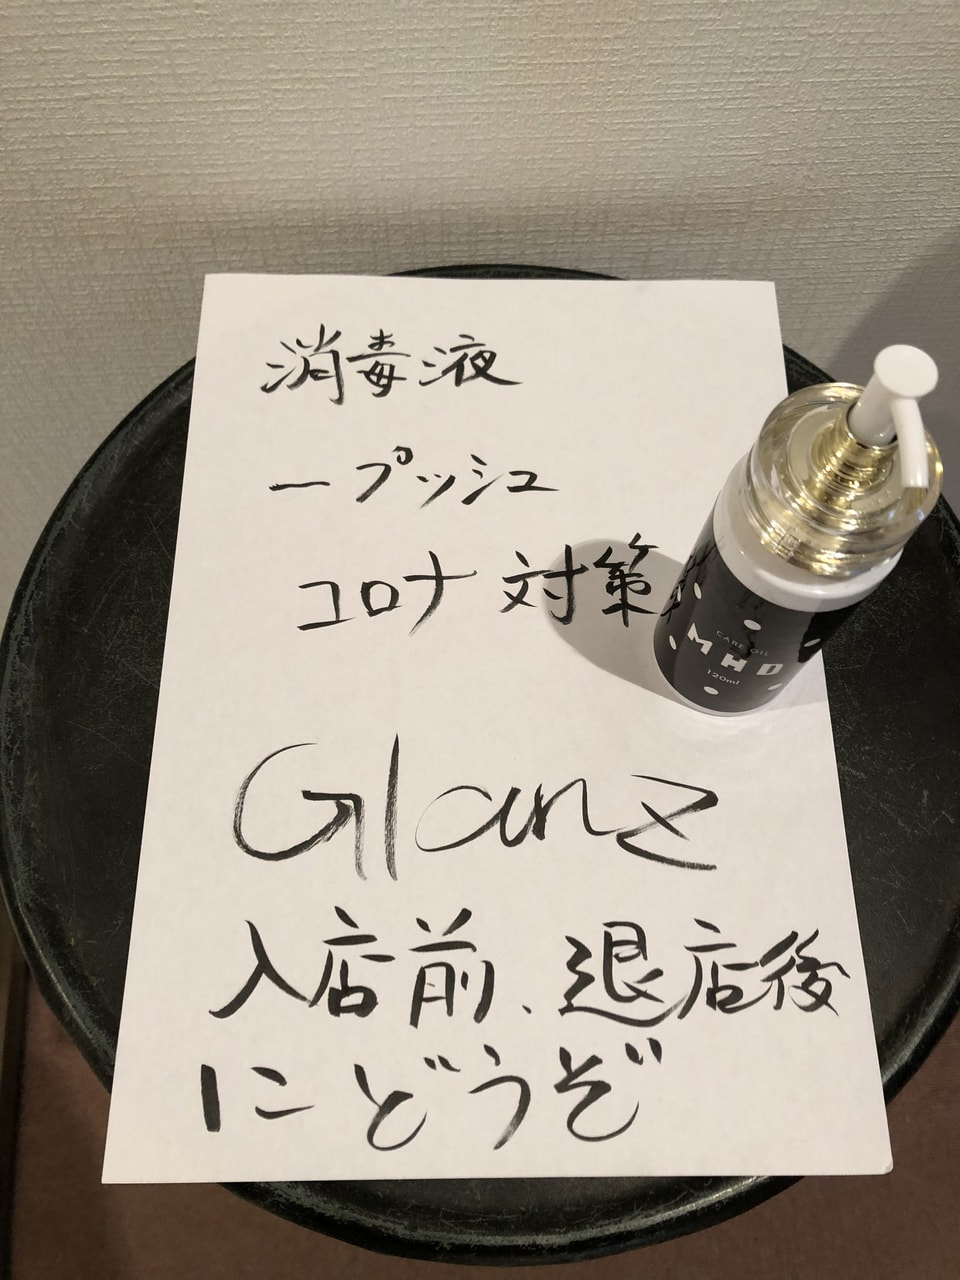 消毒液
一プッシュ
コロナ対策
CARE OIL
MHD
120ml
Glanz
入店前、退店後
にどうぞ